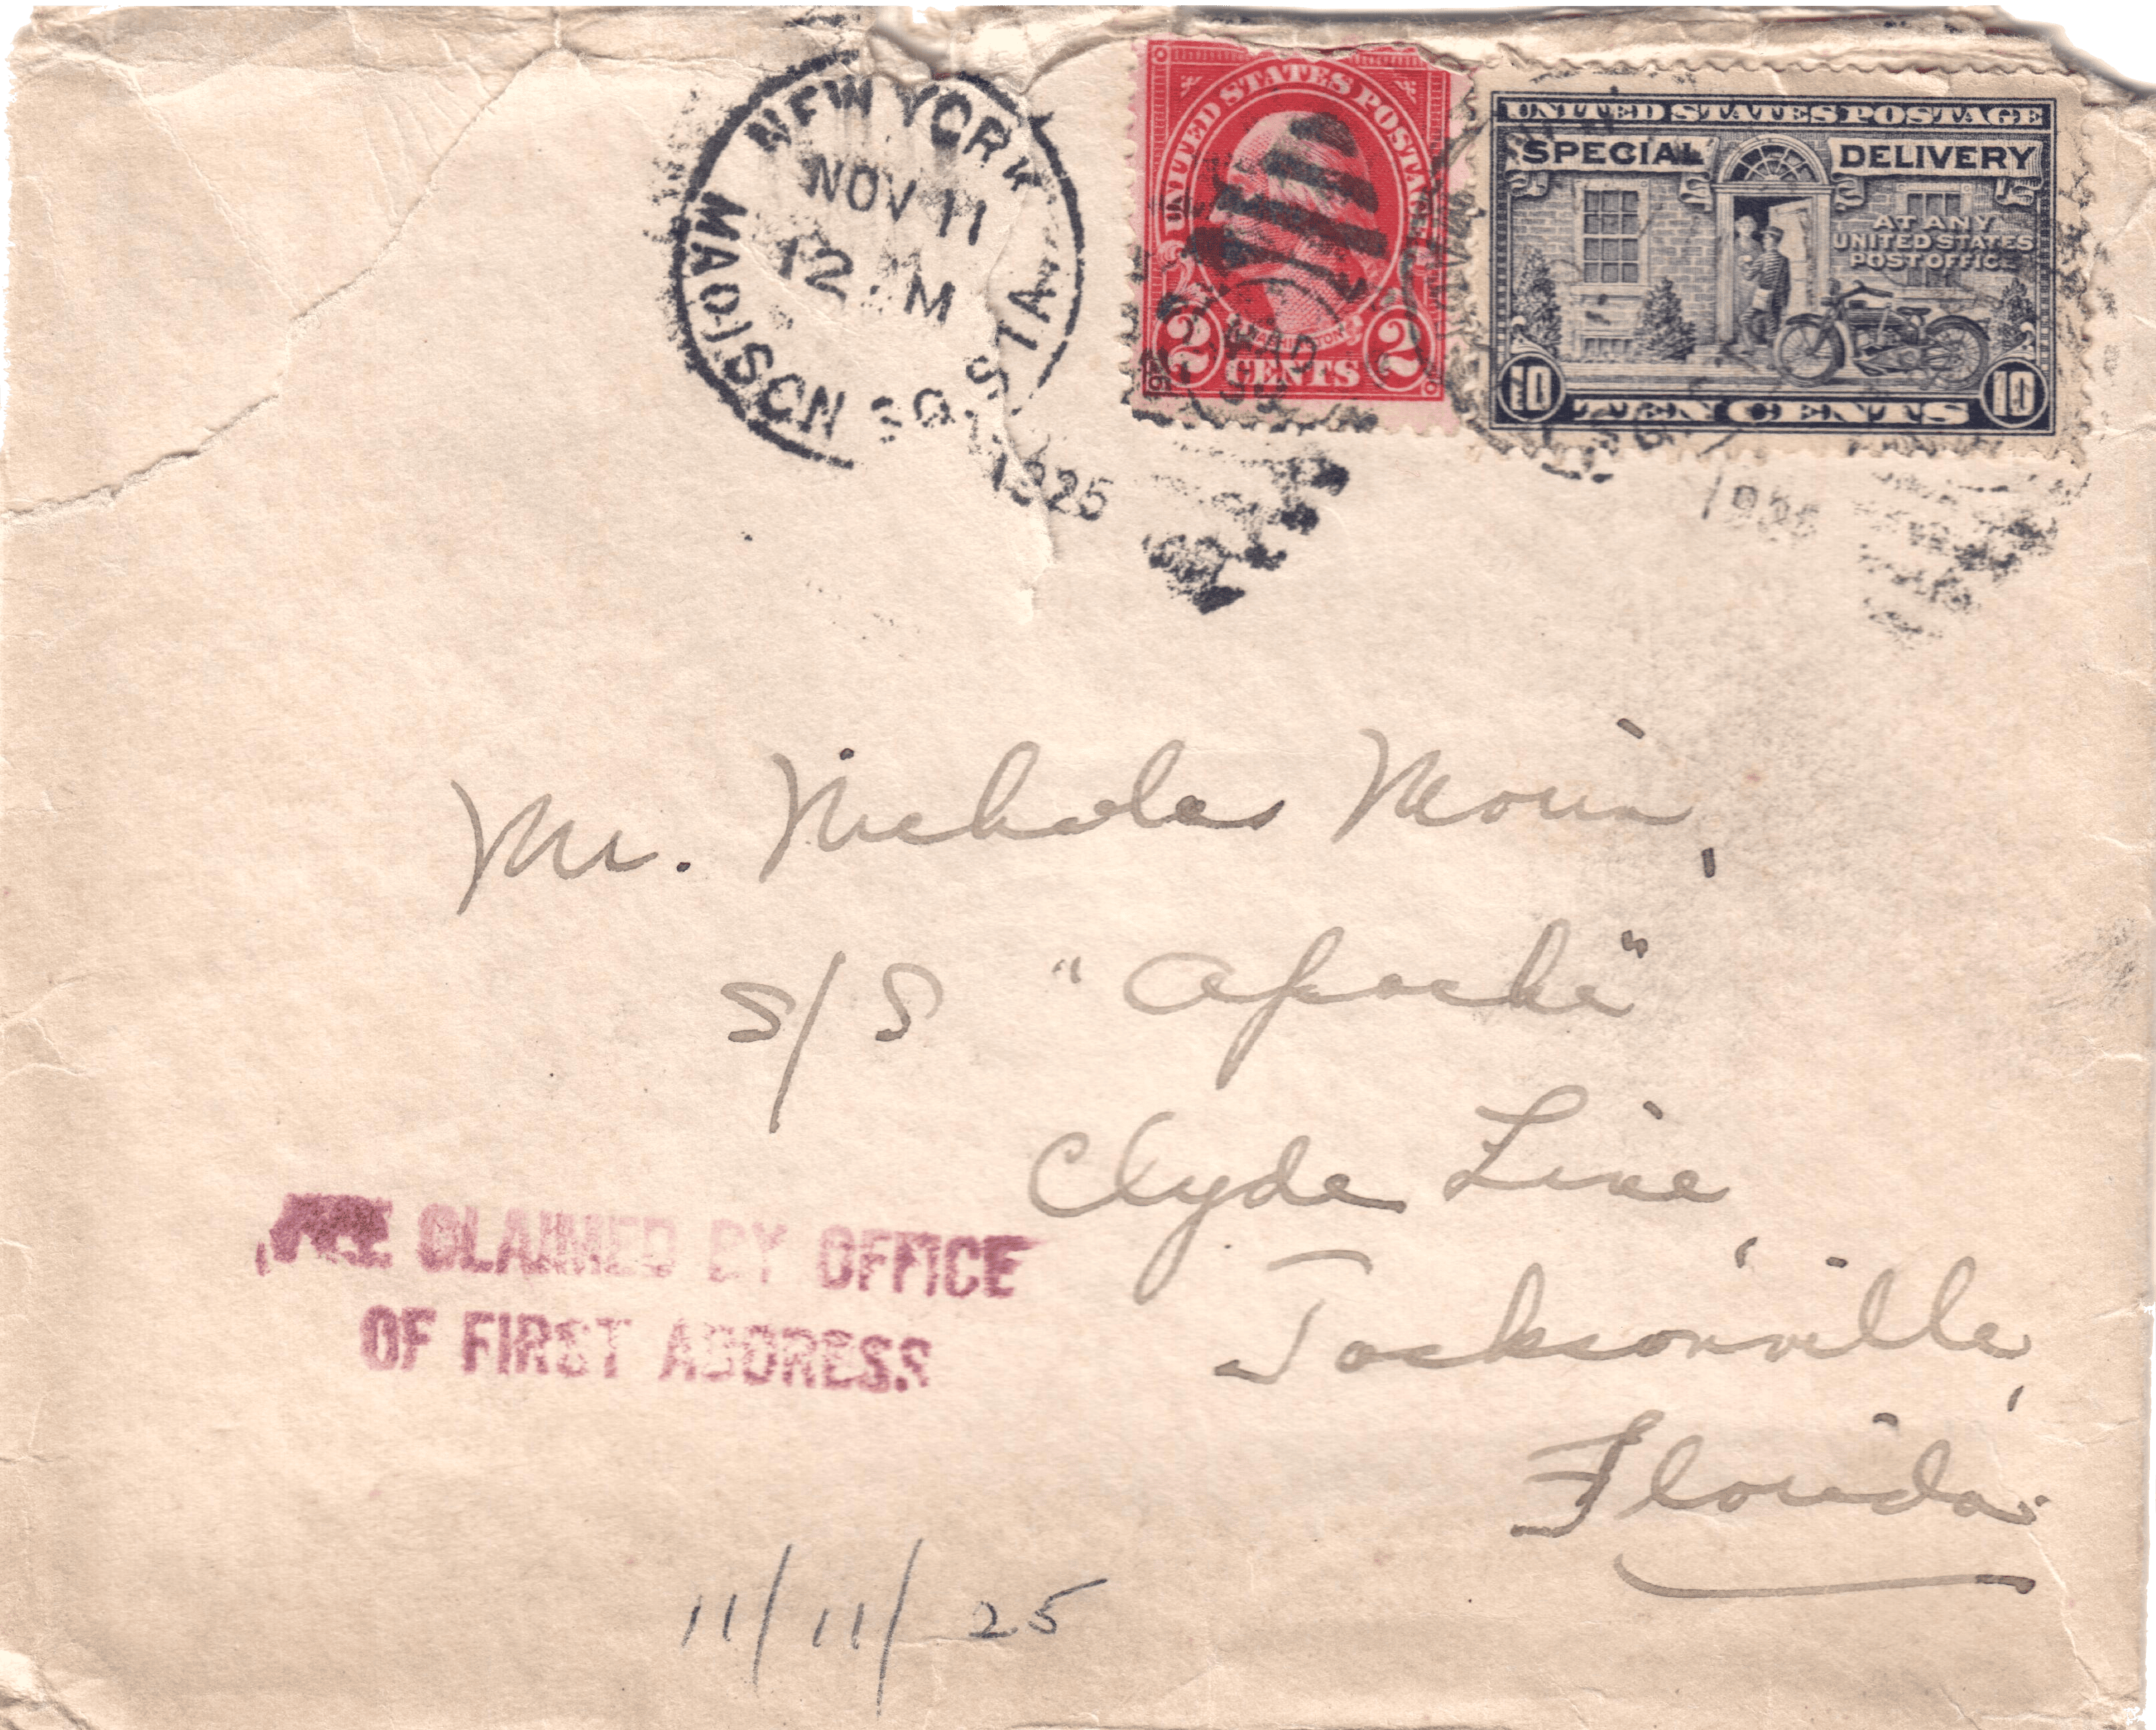 NEW YORK
NOV 11
12 M
MADISON SQ. STA.
1925
UNITED STATES POSTAGE
WASHINGTON
2 CENTS 2
MAD. SQ.
UNITED STATES POSTAGE
SPECIAL DELIVERY
AT ANY
UNITED STATES
POST OFFICE
10 TEN CENTS 10
Mr. Nicholas
S/S "Apache"
Clyde Line,
Jacksonville,
Florida.
CLAIMED BY OFFICE
OF FIRST ADDRESS
11/11/25